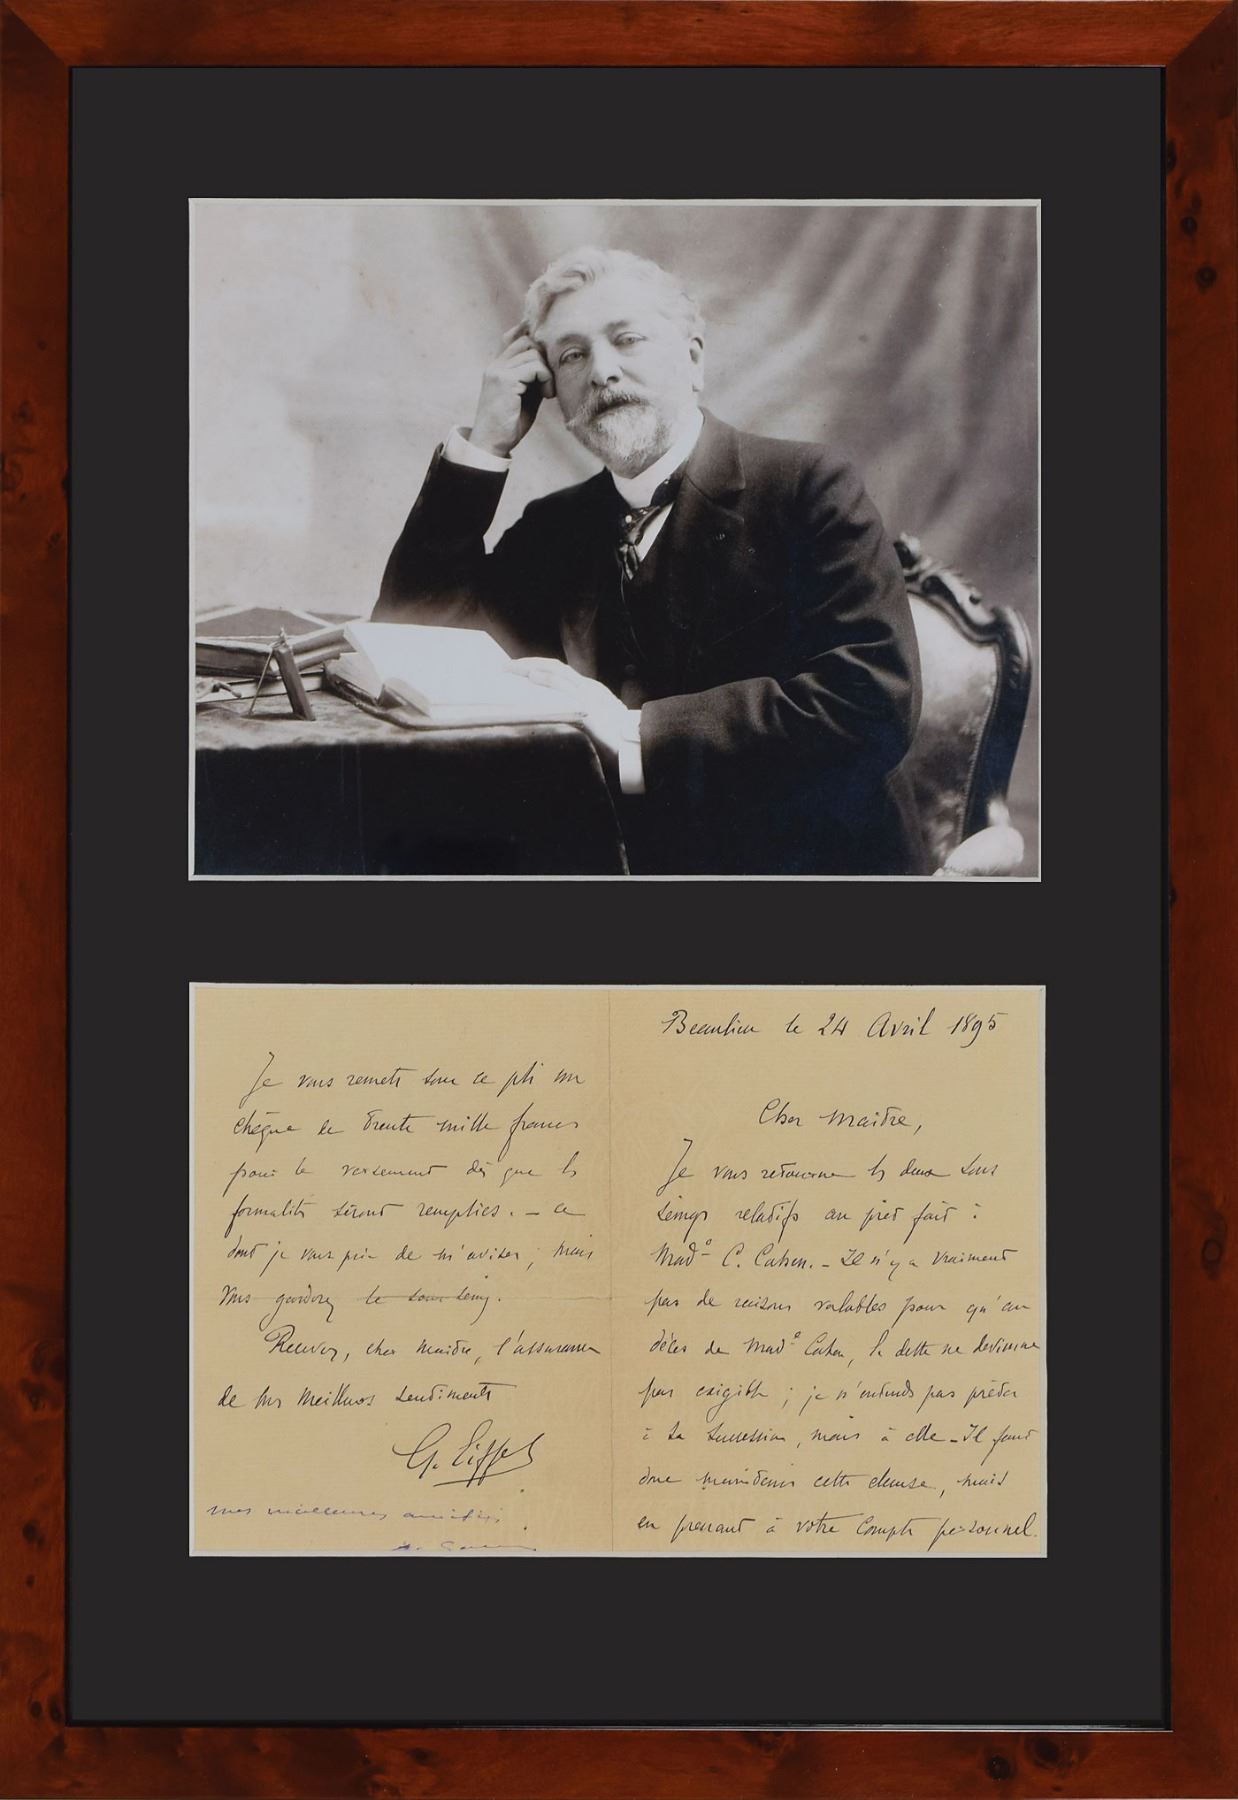 Beaulieu le 24 Avril 1895
Cher Maître,
Je vous retourne les deux sous
seings relatifs au prêt fait à
Mad.e C. Cahen. - Il n'y a vraiment
pas de raisons valables pour qu'au
décès de Mad.e Cahen, la dette ne devienne
pas exigible ; je n'entends pas prêter
à sa succession, mais à elle - Il faut
donc maintenir cette clause, mais
en prenant à votre Compte personnel.
Je vous remets sous ce pli un
chèque de trente mille francs
pour le versement dès que les
formalités seront remplies. - ce
dont je vous prie de m'aviser ; mais
vous garderez le sous seing.
Recevez, cher Maître, l'assurance
de mes meilleurs sentiments
G. Eiffel
mes meilleures amitiés